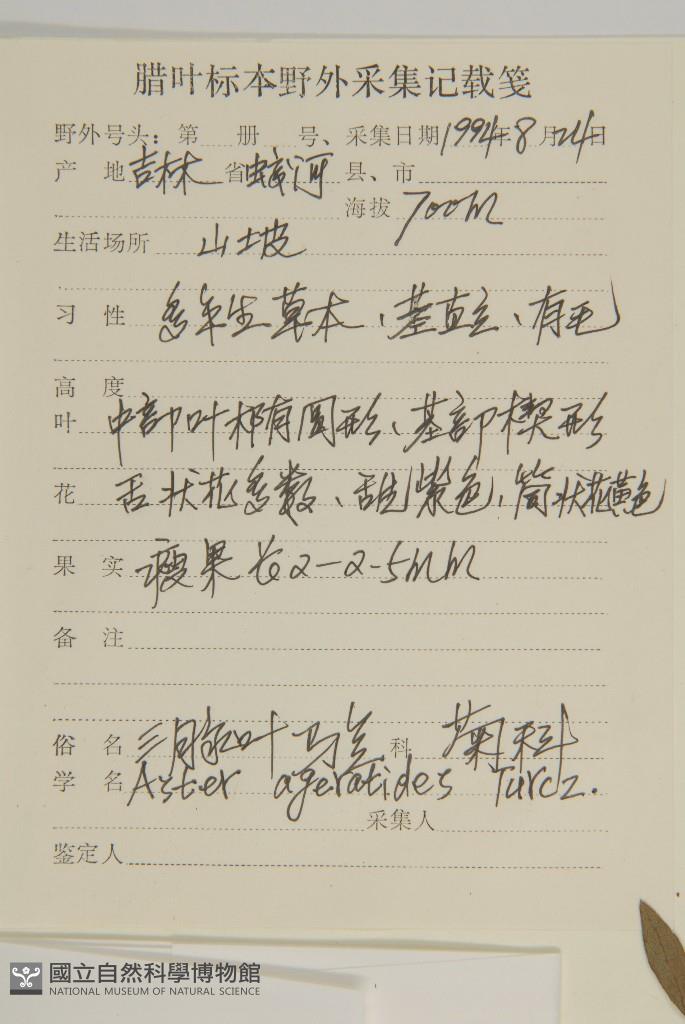 腊叶标本野外采集记载笺
野外号头：第 册 号、采集日期 1994年8月24日
产 地 吉林 省 蛟河 县、市
海拔 700m
生活场所 山坡
习 性 多年生草本、茎直立、有毛
高 度
叶 中部叶椭圆形、基部楔形
花 舌状花多数、舌片紫色，筒状花黄色
果 实 瘦果长2-2.5mm
备 注
俗 名 三脉叶马兰 科 菊科
学 名 Aster ageratides Turcz.
采集人
鉴定人
國立自然科學博物館
NATIONAL MUSEUM OF NATURAL SCIENCE